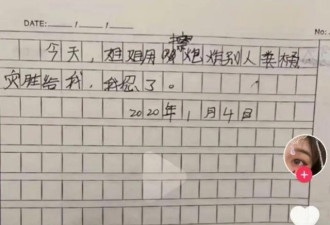 DATE: / / No:
今天,姐姐用擦炮别人粪桶
灾胜给我,我忍了。
2020年1月4日